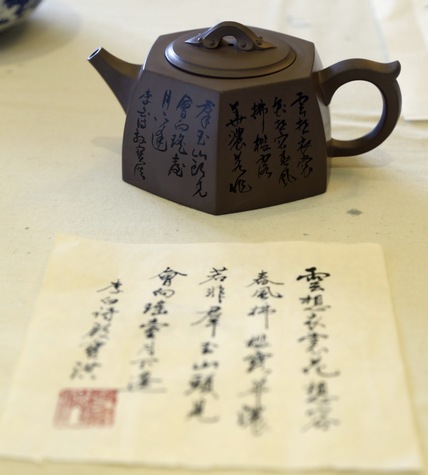 雲想衣裳
花想容春風
拂檻露
華濃若非
羣玉山頭見
會向瑤臺
月下逢
李白詩
雲想衣裳花想容
春風拂檻露華濃
若非羣玉山頭見
會向瑤臺月下逢
李白詩